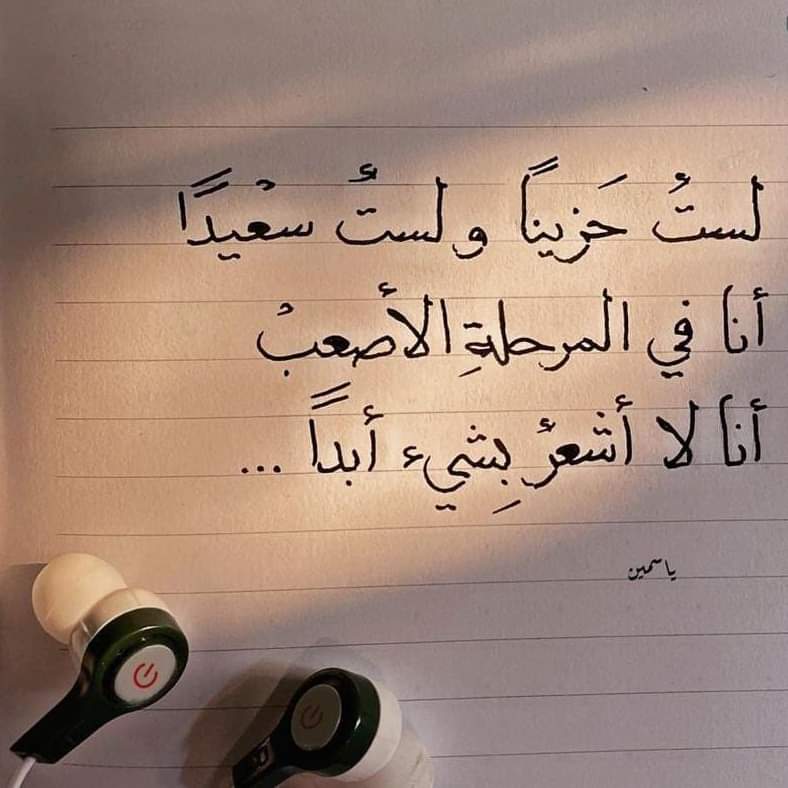 لستُ حَزينًا و لستُ سعيدًا
أنا في المرحلةِ الأصعبُ
أنا لا أشعرُ بِشيء أبداً ...
ياسمين